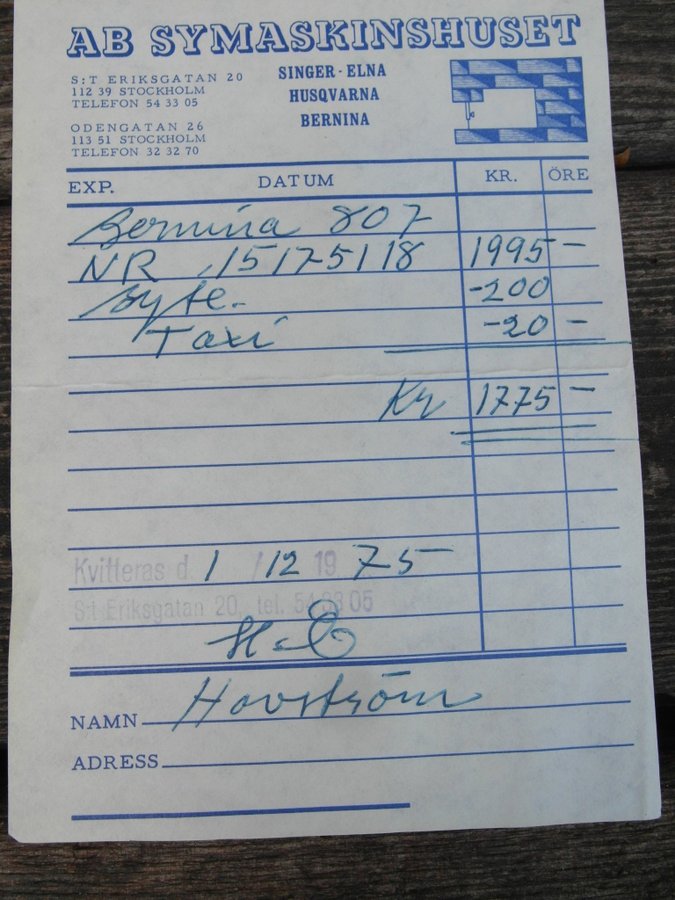 AB SYMASKINSHUSET
S:T ERIKSGATAN 20
112 39 STOCKHOLM
TELEFON 54 33 05
ODENGATAN 26
113 51 STOCKHOLM
TELEFON 32 32 70
SINGER - ELNA
HUSQVARNA
BERNINA
EXP. DATUM KR. ÖRE
Bernina 807
NR 15175118 1995 -
Byte. -200
Taxi -20 -
Kr 1775 -
Kvitteras d. 1 / 12 19 75 -
S:t Eriksgatan 20, tel. 54 33 05
NAMN Hovström
ADRESS